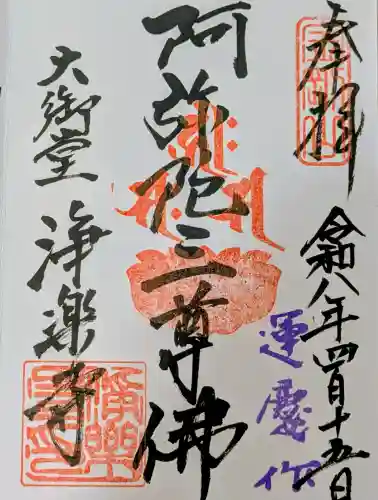 奉拝
令和八年四月十五日
運慶作
阿弥陀三尊佛
大御堂
浄楽寺